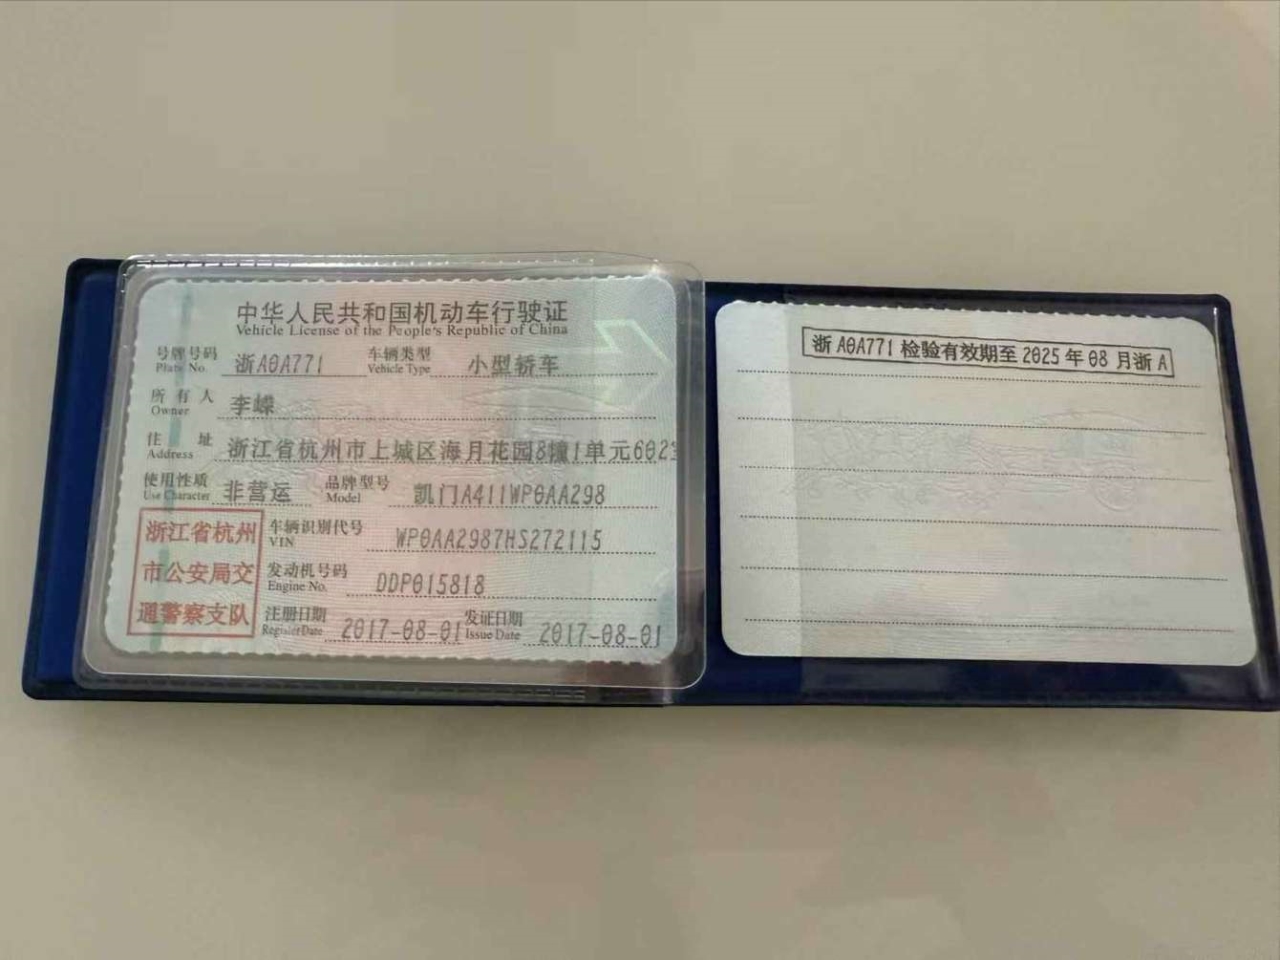 中华人民共和国机动车行驶证
Vehicle License of the People's Republic of China
号牌号码 浙A0A771 车辆类型 小型轿车
Plate No. Vehicle Type
所有人 李嵘
Owner
住址 浙江省杭州市上城区海月花园8幢1单元602室
Address
使用性质 非营运 品牌型号 凯门A411WP0AA298
Use Character Model
浙江省杭州
市公安局交
通警察支队
车辆识别代号 WP0AA2987HS272115
VIN
发动机号码 DDP015818
Engine No.
注册日期 2017-08-01 发证日期 2017-08-01
Register Date Issue Date
浙A0A771检验有效期至2025年08月浙A